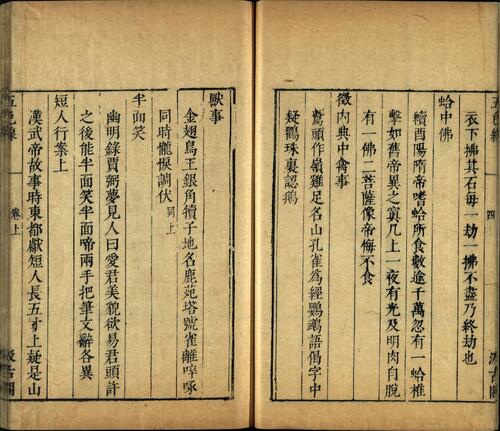 四
衣下拂其石每一劫一拂不盡乃終劫也
蛤中佛
續酉陽隋帝嗜蛤所食數逾千萬忽有一蛤椎
擊如舊帝異之寘几上一夜有光及明肉自脫
有一佛二菩薩像帝悔不食
徵內典中禽事
鷲頭作嶺雞足名山孔雀爲經鸚鵡語偈字中
疑鸛珠裏認鵝
獸事
金翅鳥王銀角犢子地名鹿苑塔號雀離啐啄
同時儱悷調伏同上
半面笑
幽明錄賈弼夢見人曰愛君美貌欲易君頭許
之後能半面笑半面啼兩手把筆文辭各異
短人行案上
漢武帝故事時東都獻短人長五寸上疑是山
卷上